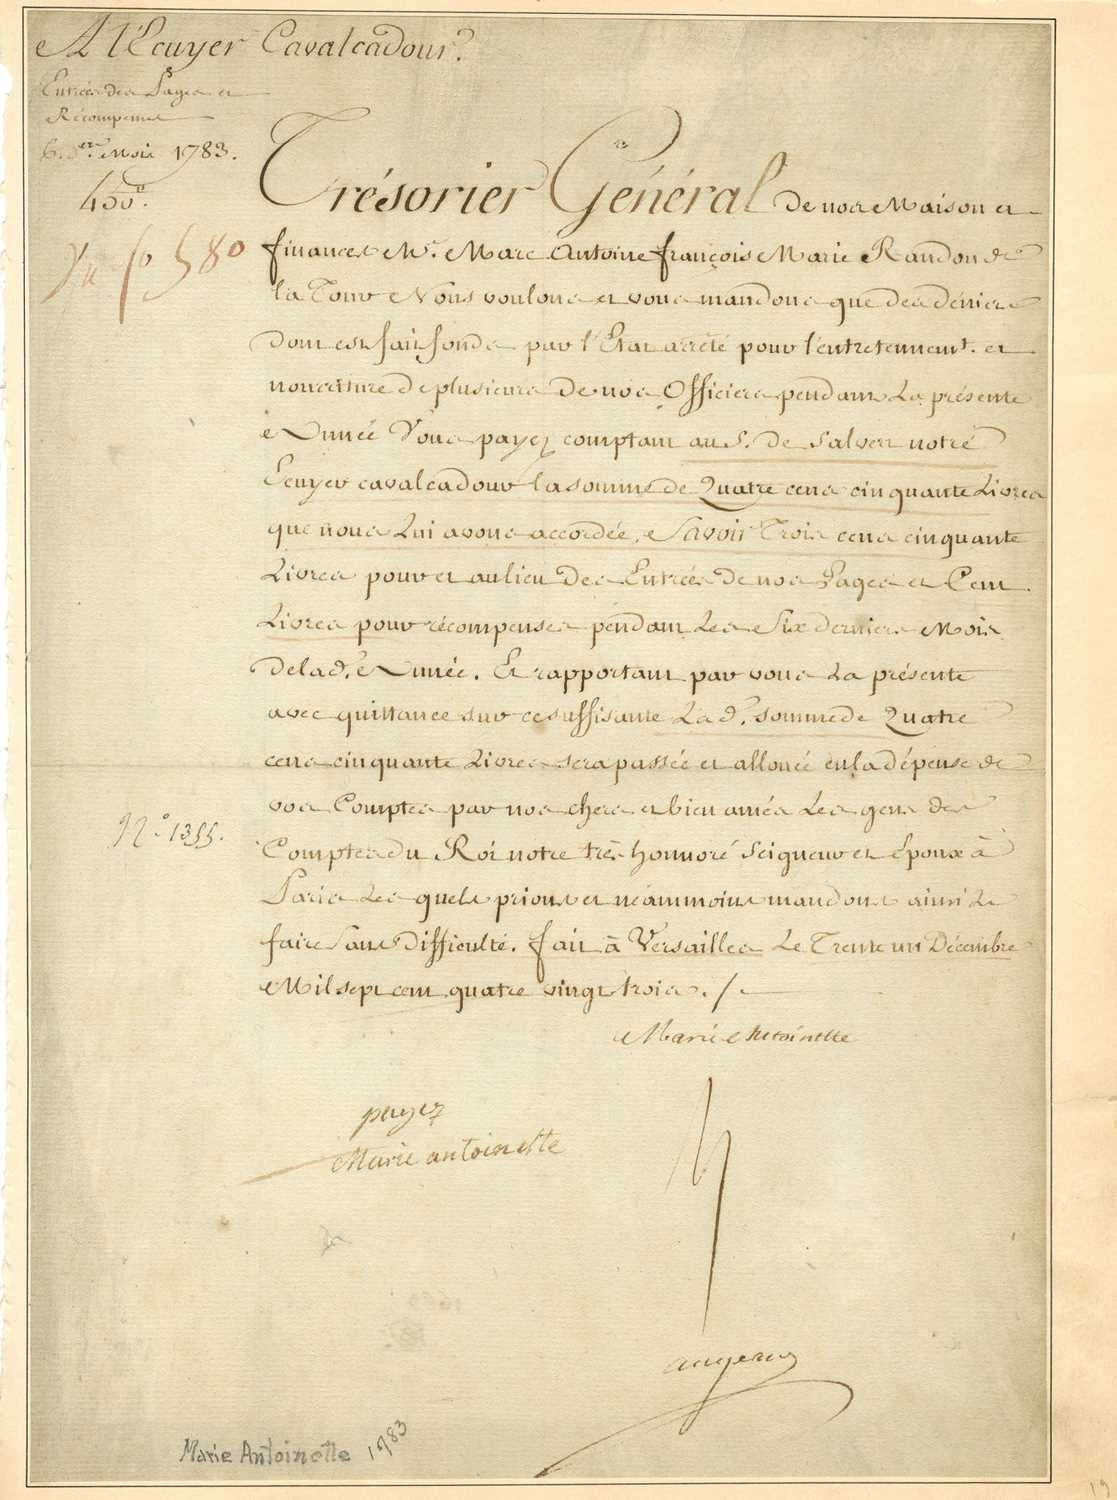 A l'Ecuyer Cavalcadour.
Entrées des Pages et
Récompenses
6. ders. Mois 1783.
450.
Vu fo 580
Trésorier Général de nos Maison et
finances Mr. Marc Antoine françois Marie Randon de
la Tour Nous voulons et vous mandons que des déniers
dont est fait fonds par l'Etat arrêté pour l'entretennemt. et
nourriture de plusieurs de nos Officiers pendant La présente
Année Vous payez comptant au S. de Salvert notre
Ecuyer cavalcadour la somme de Quatre cens cinquante Livres
que nous Lui avons accordée, Savoir Trois cens cinquante
Livres pour et au lieu des Entrées de nos Pages et Cent
Livres pour récompenses pendant Les Six derniers Mois
de la d. Année. Et rapportant par vous La présente
avec quittance sur ce suffisante La d. somme de Quatre
cens cinquante Livres sera passée et allouée en la dépense de
vos Comptes par nos chers et bien amés Les gens des
Comptes du Roi notre très honnoré Seigneur et Epoux à
Paris Les quels prions et néammoins mandons ainsi Le
faire Sans Difficulté. fait à Versailles Le Trente un Décembre
Mil sept cent quatre vingt trois. /.
N.o 1355.
Marie Antoinette
payez
Marie antoinette
augeard
Marie Antoinette 1783
19